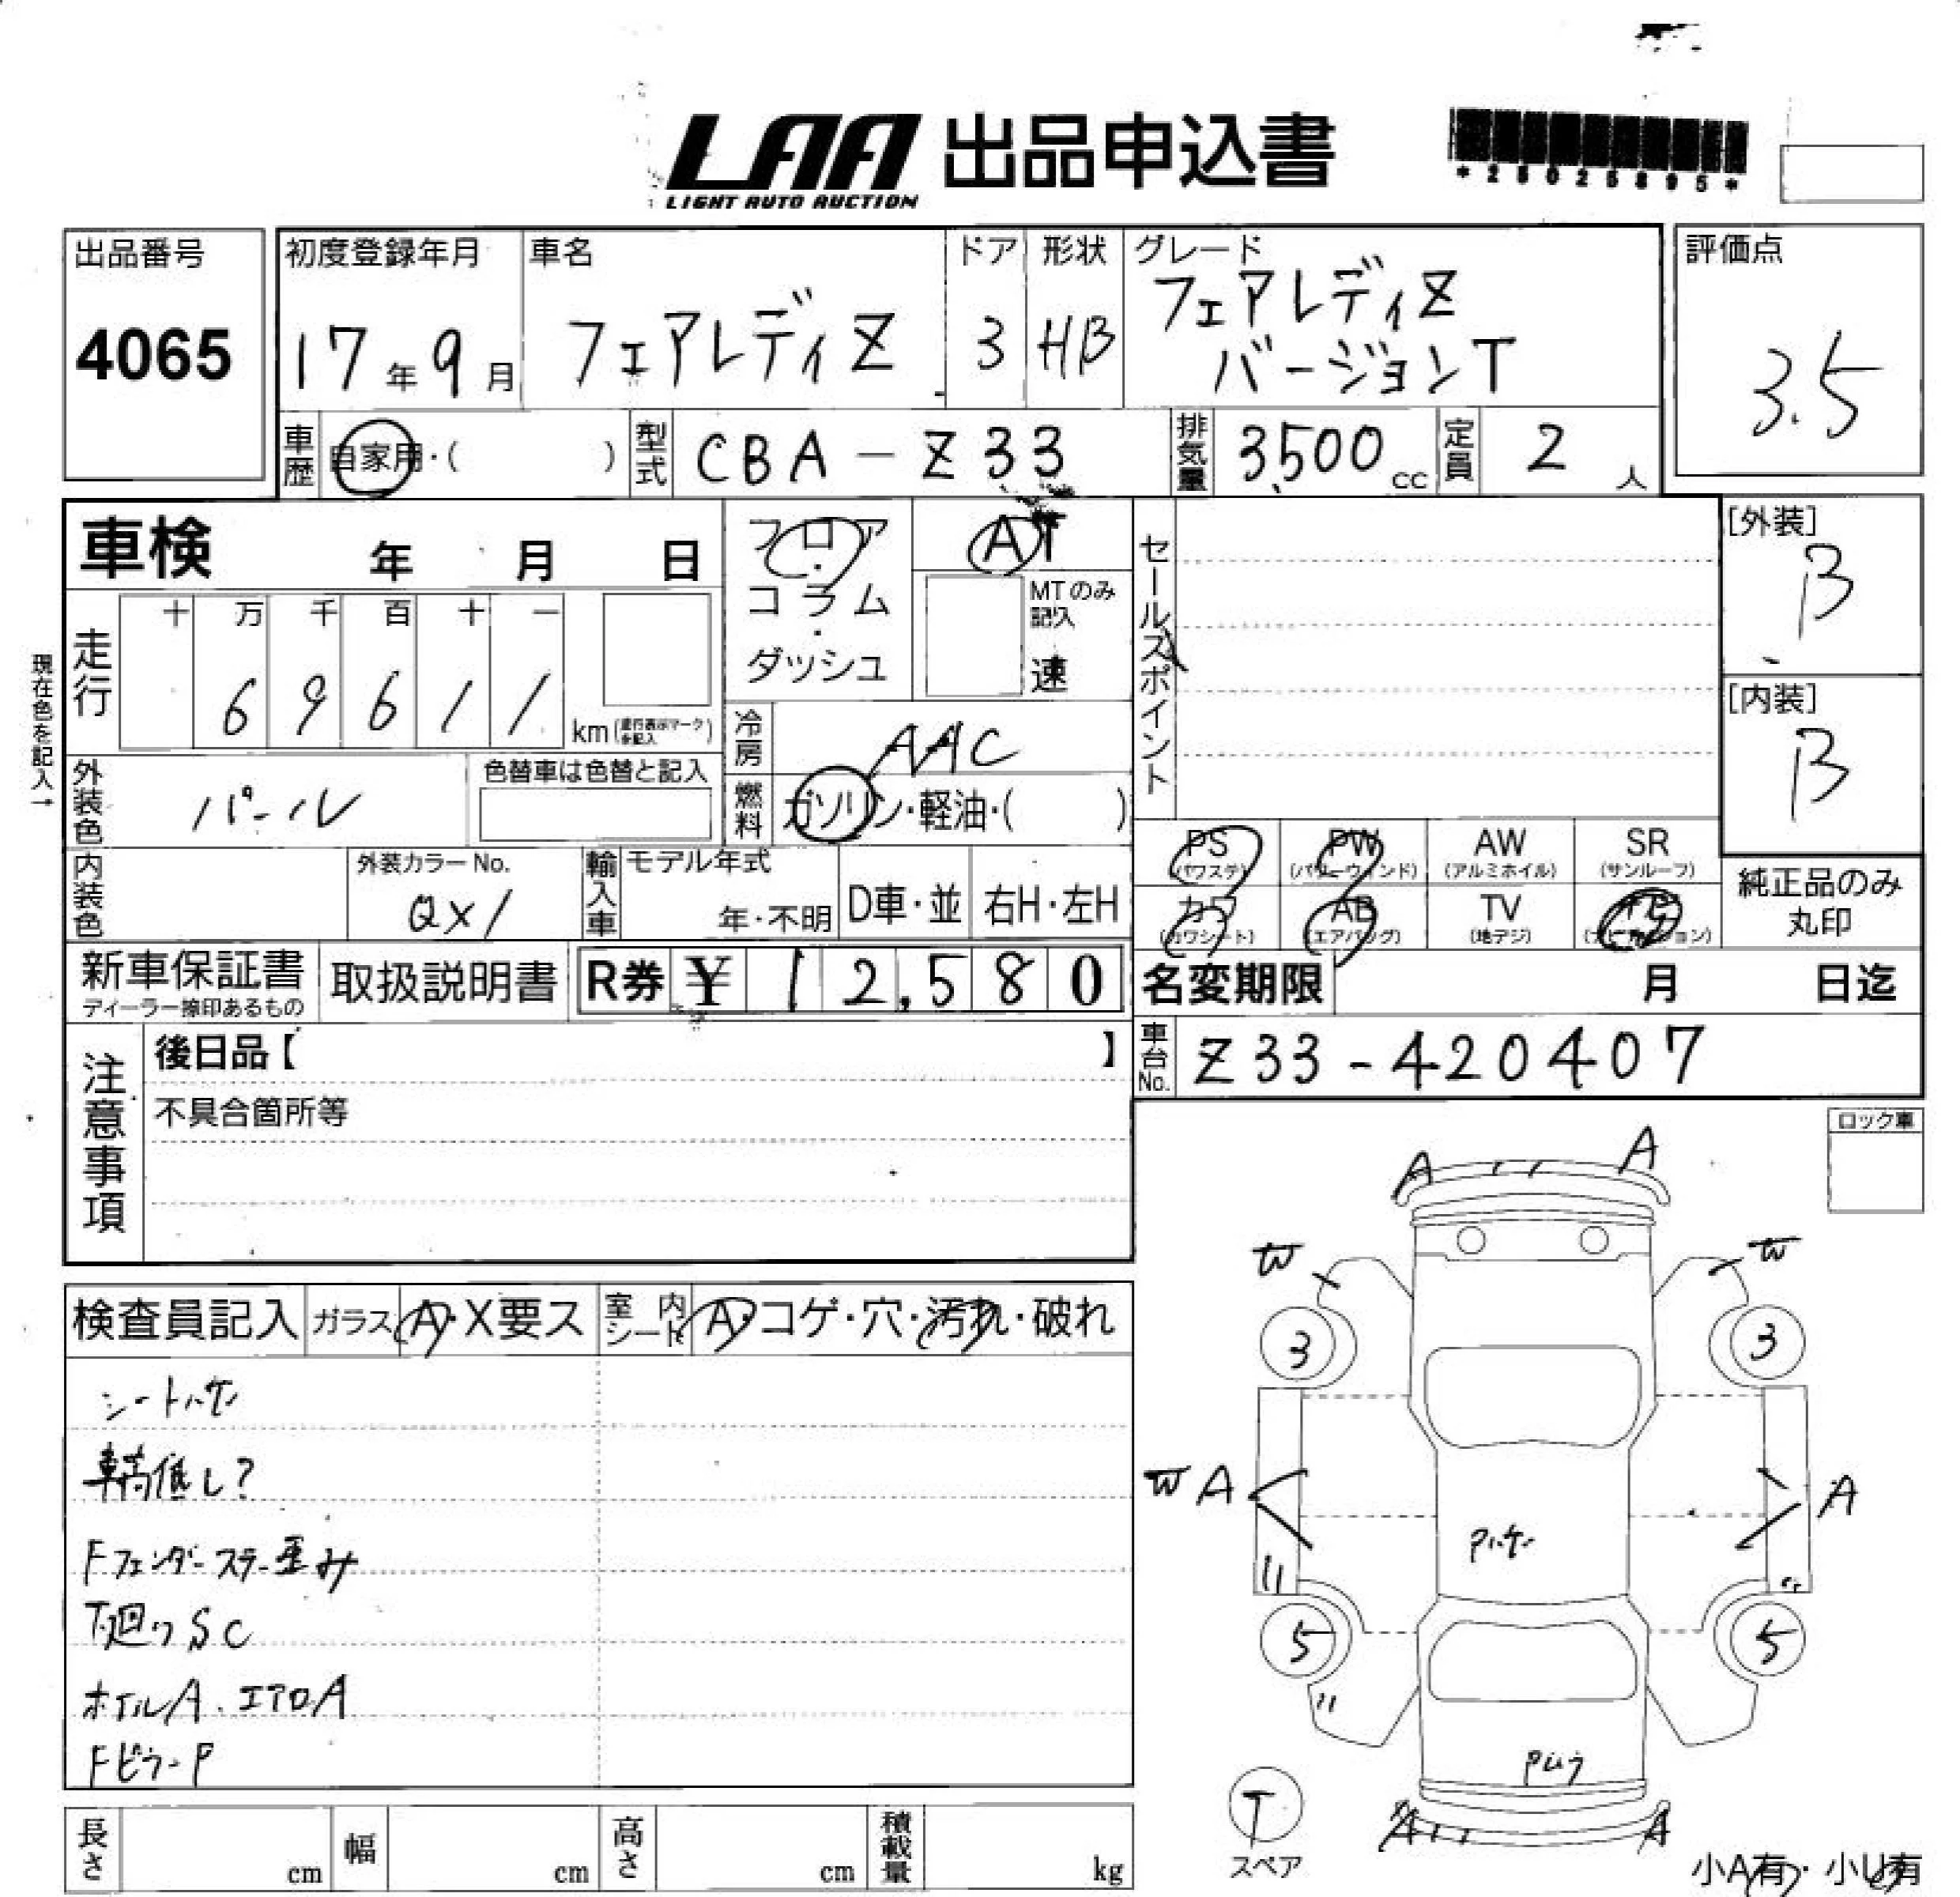 LAA 出品申込書
LIGHT AUTO AUCTION
出品番号
4065
初度登録年月
17年9月
車名
フェアレディZ
ドア
3
形状
HB
グレード
フェアレディZ
バージョンT
評価点
3.5
車歴 自家用・( )
型式 CBA-Z33
排気量 3,500 cc
定員 2 人
車検 年 月 日
フロア・コラム・ダッシュ
AT
MTのみ記入
速
セールスポイント
[外装]
B
[内装]
B
現在色を記入→
走行
十 万 千 百 十 一
6 9 6 1 1
km(走行表示マークを記入)
冷房 AAC
外装色 パール
色替車は色替と記入
燃料 ガソリン・軽油・( )
内装色
外装カラーNo.
QX1
輸入車
モデル年式
年・不明
D車・並
右H・左H
PS
(パワステ)
PW
(パワーウインド)
AW
(アルミホイル)
SR
(サンルーフ)
カワ
(カワシート)
AB
(エアバッグ)
TV
(地デジ)
純正品のみ
丸印
新車保証書
ディーラー捺印あるもの
取扱説明書
R券 ¥ 12,580
名変期限 月 日迄
車台No. Z33-420407
注意事項
後日品【 】
不具合箇所等
ロック車
検査員記入
ガラス A・X要ス
室内シート A・コゲ・穴・汚れ・破れ
シートハゲ
車高低し?
Fフェンダーステー歪み
下廻りSC
ホイルA.エアロA
FピラーP
A A
W W
3 3
W A A
Pハゲ
5 5
T
スペア
A A
小A有・小U有
長さ cm
幅 cm
高さ cm
積載量 kg